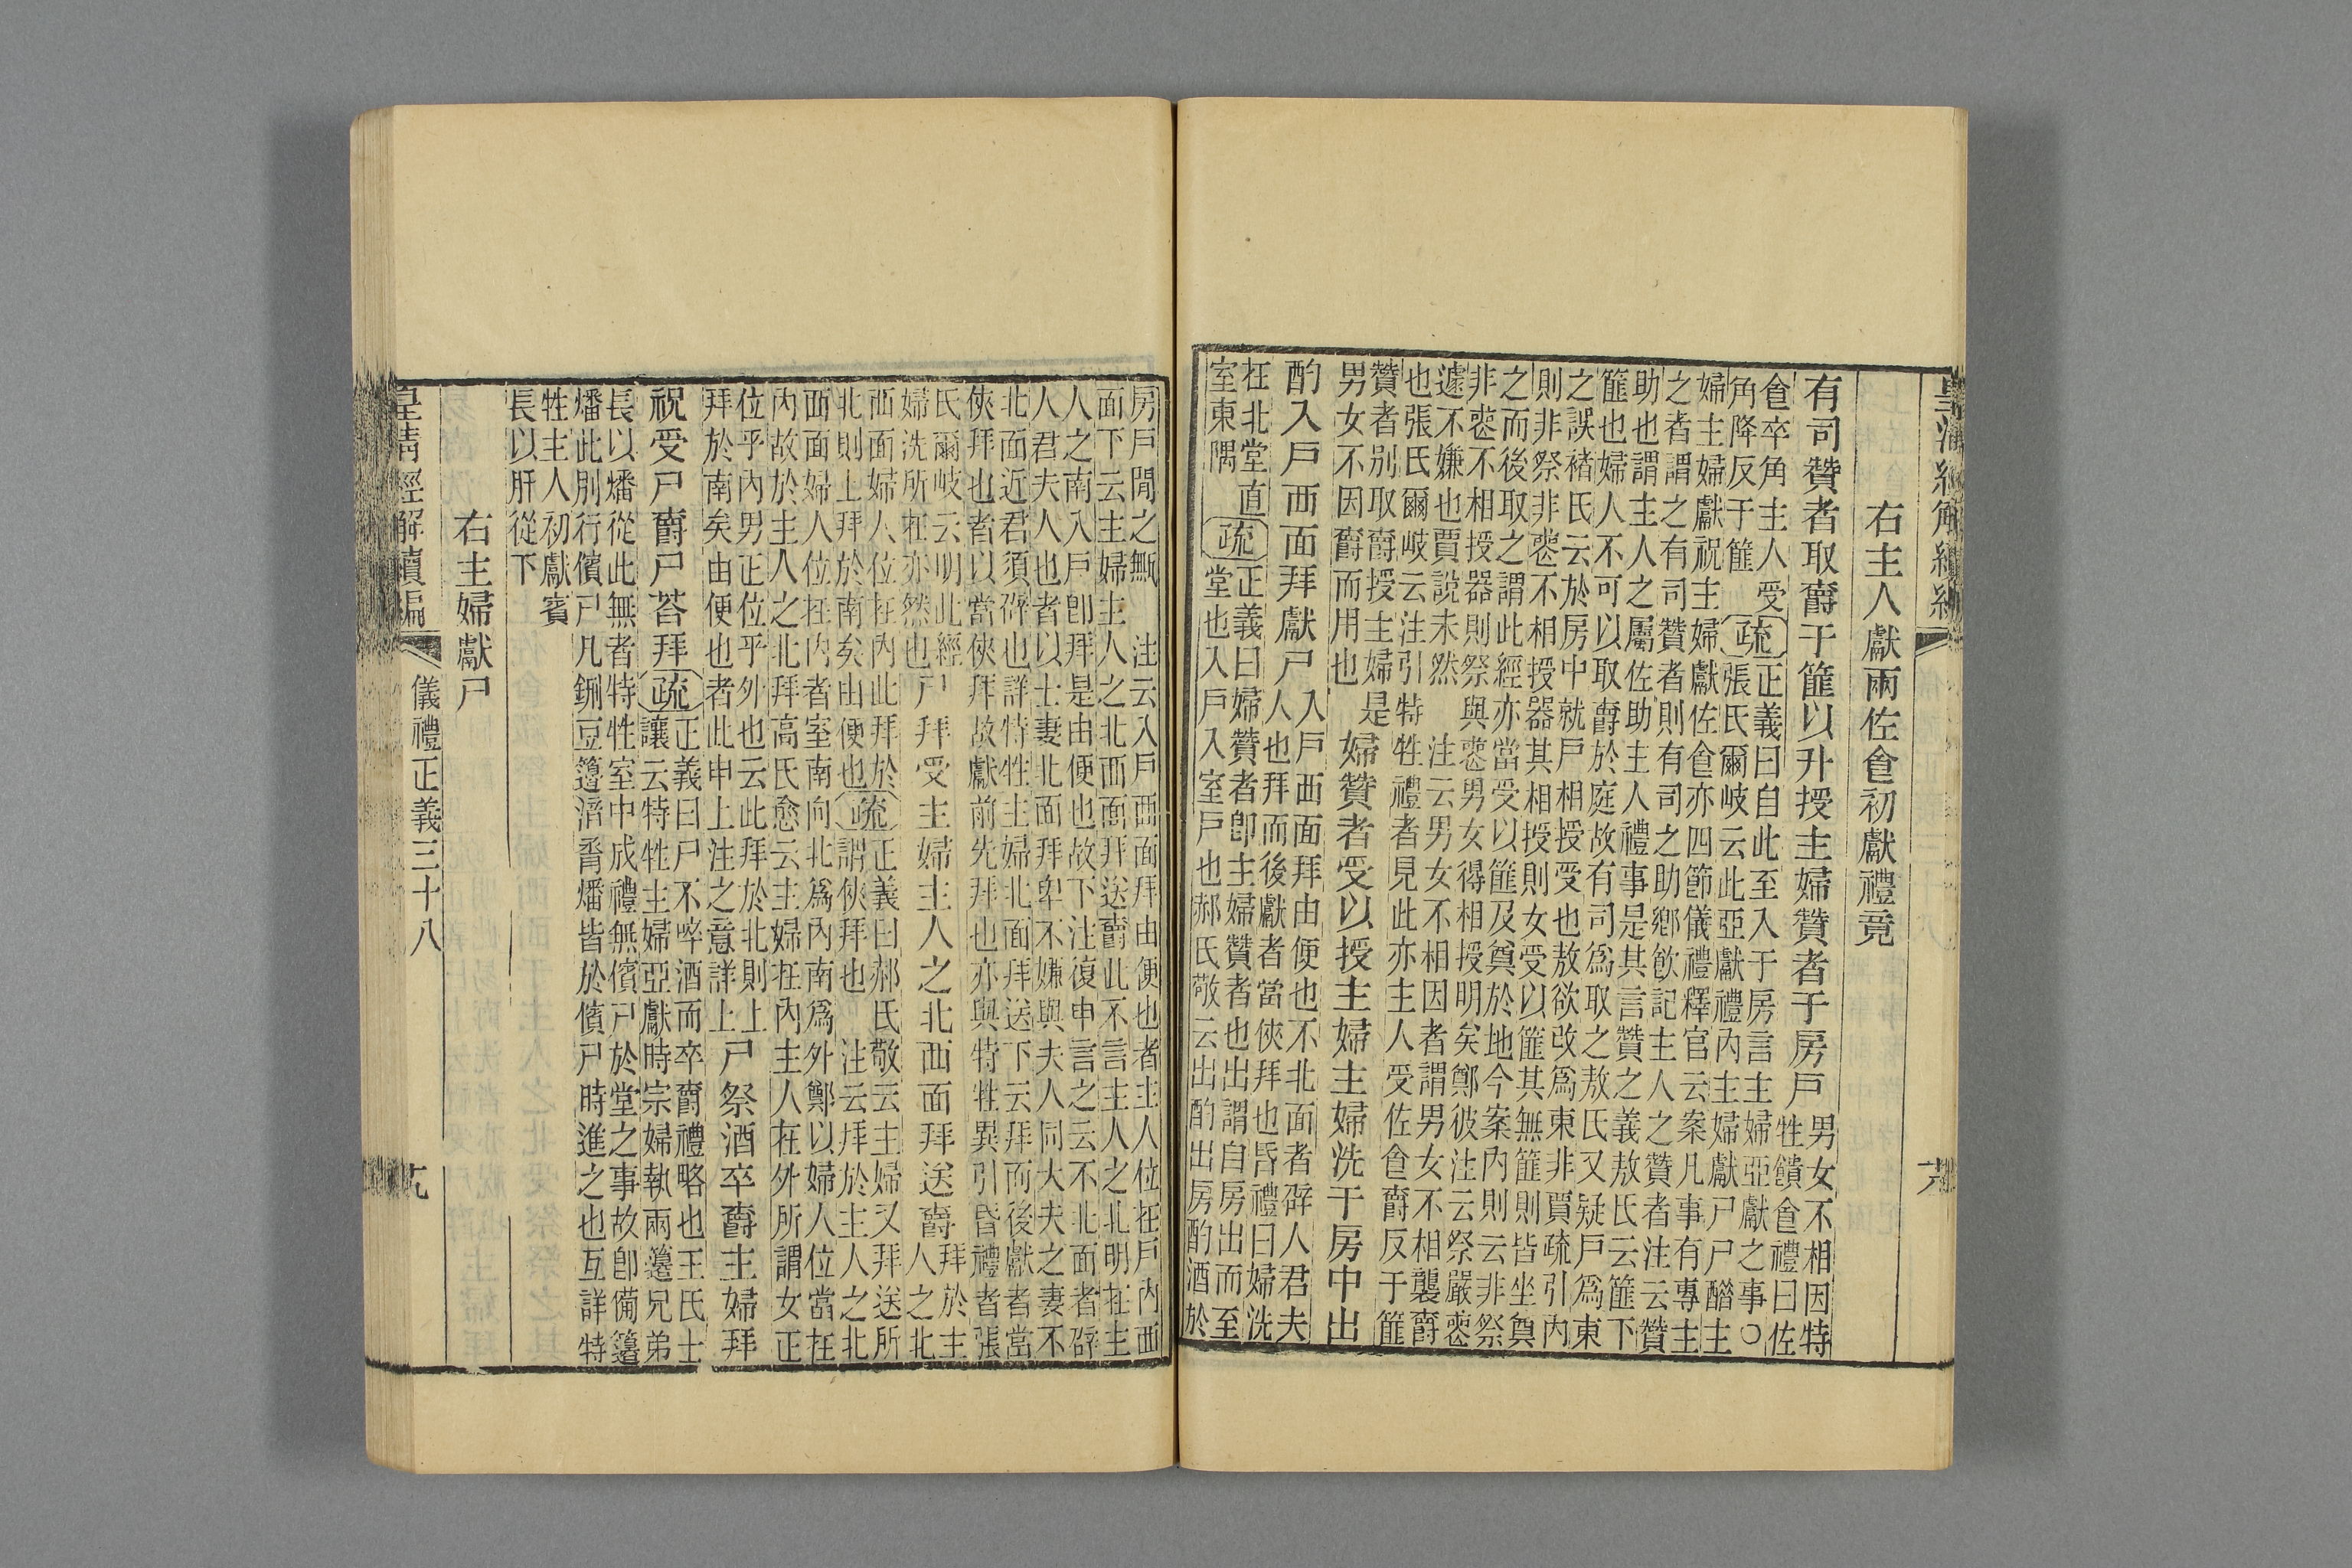 右主人獻兩佐食初獻禮竟
有司贊者取爵于篚以升授主婦贊者于房戶
男女不相因特
牲饋食禮曰佐
食卒角主人受
角降反于篚
疏
正義曰自此至入于房言主婦亞獻之事○
張氏爾岐云此亞獻禮內主婦獻尸尸醋主
婦主婦獻祝主婦獻佐食亦四節儀禮釋官云案凡事有專主
之者謂之有司贊者則有司之助鄉飮記主人之贊者注云贊
助也謂主人之屬佐助主人禮事是其言贊之義敖氏云篚下
篚也婦人不可以取爵於庭故有司爲取之敖氏又疑戶爲東
之誤褚氏云於房中就戶相授受也敖欲改爲東非賈疏引內
則非祭非喪不相授器其相授則女受以篚其無篚則皆坐奠
之而後取之謂此經亦當受以篚及奠於地今案內則云非祭
非喪不相授器則祭與喪男女得相授明矣鄭彼注云祭嚴喪
遽不嫌也賈說未然　注云男女不相因者謂男女不相襲爵
也張氏爾岐云注引特牲禮者見此亦主人受佐食爵反于篚
贊者別取爵授主婦是
男女不因爵而用也
婦贊者受以授主婦主婦洗于房中出
酌入戶西面拜獻尸
入戶西面拜由便也不北面者辟人君夫
人也拜而後獻者當俠拜也昏禮曰婦洗
在北堂直
室東隅
疏
正義曰婦贊者卽主婦贊者也出謂自房出而至
堂也入戶入室戶也郝氏敬云出酌出房酌酒於
房戶閒之甒　注云入戶西面拜由便也者主人位在戶內西
面下云主婦主人之北西面拜送爵此不言主人之北明在主
人之南入戶卽拜是由便也故下注復申言之云不北面者辟
人君夫人也者以士妻北面拜卑不嫌與夫人同大夫之妻不
北面近君須辟也詳特牲主婦北面拜送下云拜而後獻者當
俠拜也者以當俠拜故獻前先拜也亦與特牲異引昏禮者張
氏爾岐云明此經
婦洗所在亦然也
尸拜受主婦主人之北西面拜送爵
拜於主
人之北
西面婦人位在內此拜於
北則上拜於南矣由便也
疏
正義曰郝氏敬云主婦又拜送所
謂俠拜也　注云拜於主人之北
西面婦人位在內者室南向北爲內南爲外鄭以婦人位當在
內故於主人之北拜高氏愈云主婦在內主人在外所謂女正
位乎內男正位乎外也云此拜於北則上
拜於南矣由便也者此申上注之意詳上
尸祭酒卒爵主婦拜
祝受尸爵尸荅拜
疏
正義曰尸不啐酒而卒爵禮略也王氏士
讓云特牲主婦亞獻時宗婦執兩籩兄弟
長以燔從此無者特牲室中成禮無儐尸於堂之事故卽備籩
燔此別行儐尸凡鉶豆籩湆脀燔皆於儐尸時進之也互詳特
牲主人初獻賓
長以肝從下
右主婦獻尸
皇清經解續編
儀禮正義三十八